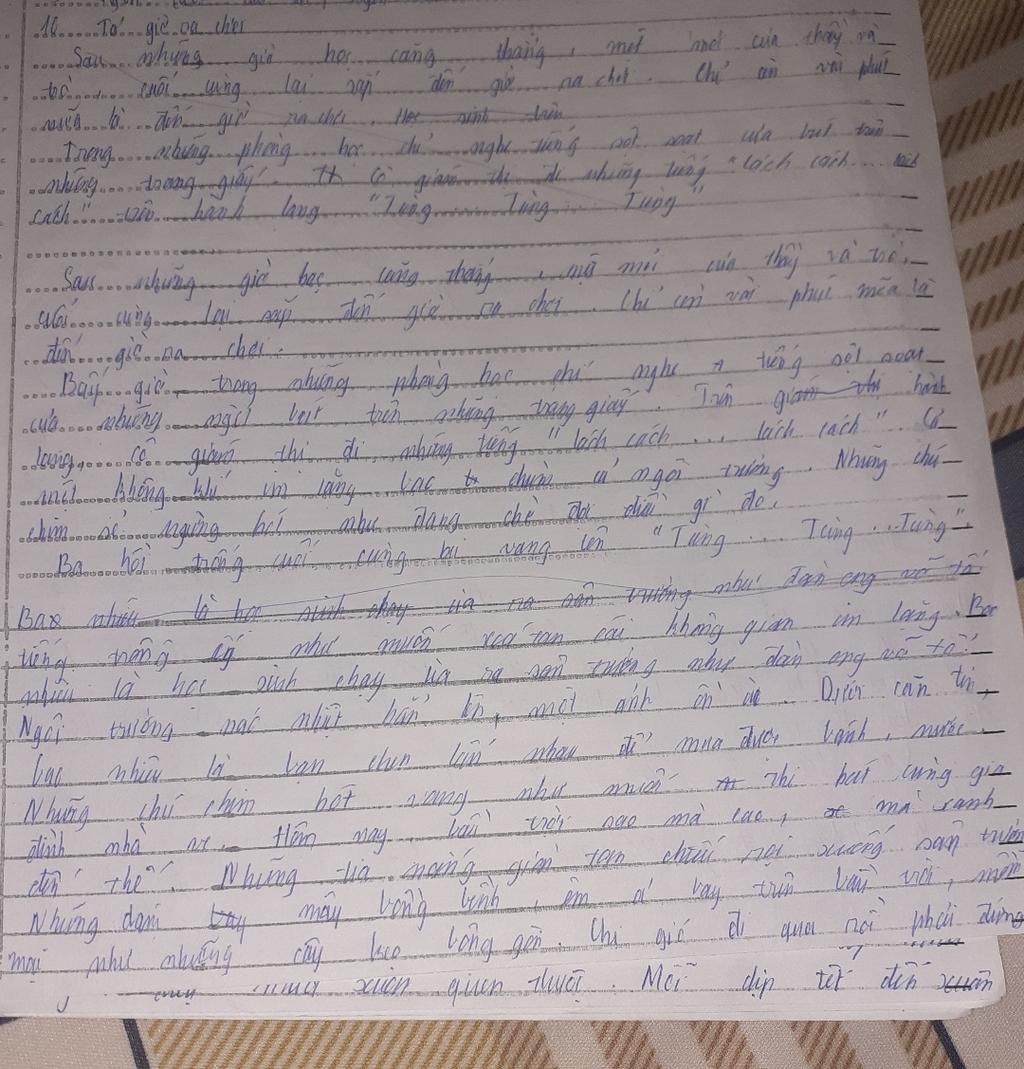 10. Tả giờ ra chơi
Sau những giờ học căng thẳng, mệt mỏi của thầy và
trò, cuối cùng lại sắp đến giờ ra chơi. Chỉ còn vài phút
nữa là đến giờ ra chơi. Học sinh trên
Trong những phòng học chỉ nghe tiếng sột soạt của bút trên
những trang giấy. Th Cô giám thị đi những tiếng "lách cách ... lách
cách" trên hành lang "Tùng ... Tùng ... Tùng"
Sau những giờ học căng thẳng, mệt mỏi của thầy và trò,
cuối cùng lại sắp đến giờ ra chơi. Chỉ còn vài phút nữa là
đến giờ ra chơi.
Bấy giờ, trong những phòng học chỉ nghe tiếng sột soạt
của những ngòi bút trên những trang giấy. Trên giám thị hành
lang, cô giám thị đi những tiếng "lách cách ... lách cách". Có
một không khí im lặng bao trùm cả ngôi trường. Những chú
chim sẻ ngừng hót như đang chờ đợi điều gì đó.
Ba hồi trống cuối cùng lại vang lên "Tùng ... Tùng ... Tùng".
Bao nhiêu là học sinh chạy ùa ra sân trường như đàn ong vỡ tổ
tiếng trống ấy như muốn xoá tan cái không gian im lặng. Bao
nhiêu là học sinh chạy ùa ra sân trường như đàn ong vỡ tổ.
Ngôi trường náo nhiệt hẳn lên, một ồn ào. Dưới căn tin,
bao nhiêu là bạn chen lấn nhau để mua được bánh, nước.
Những chú chim hót vang như muốn thi hát cùng gia
đình nhà ve. Hôm nay bầu trời sao mà cao, mà xanh
đến thế. Những tia nắng giòn tan chiếu rọi xuống sân trường
Những đám bay mây bồng bềnh, êm ả bay trên bầu trời, mềm
mại như những cây kẹo bông gòn. Chị gió đi qua rồi phải dừng
xuân quen thuộc. Mỗi dịp tết đến xuân